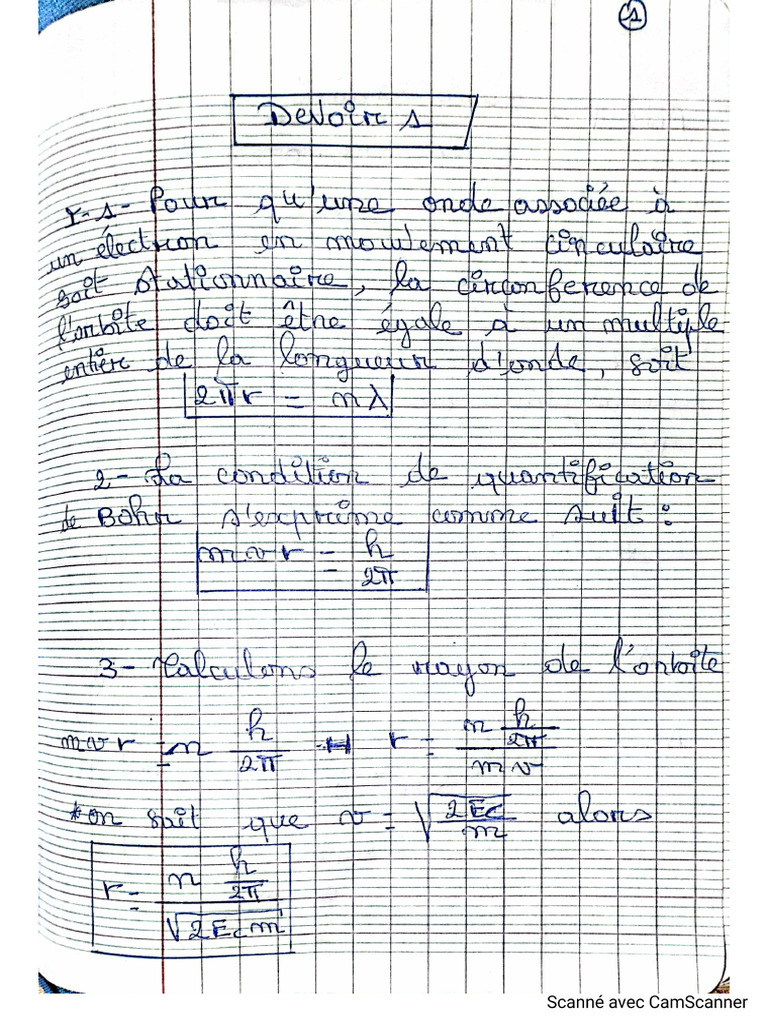 1
Devoir 1
I-1- Pour qu'une onde associée à
un électron en mouvement circulaire
soit stationnaire, la circonference de
l'orbite doit être égale à un multiple
entière de la longueur d'onde, soit
2πr = nλ
2- La condition de quantification
de Bohr s'exprime comme suit :
mvr = h/2π
3- Calculons le rayon de l'orbite
mvr = n h/2π ↔ r = (n h/2π)/(mv)
*on sait que v = √(2Ec/m) alors
r = (n h/2π)/√(2Ecm)
Scanné avec CamScanner